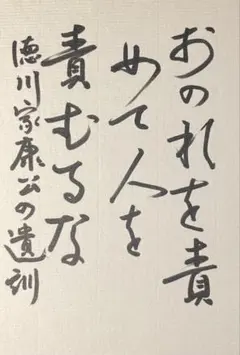 おのれを責
めて人を
責むるな
徳川家康公の遺訓